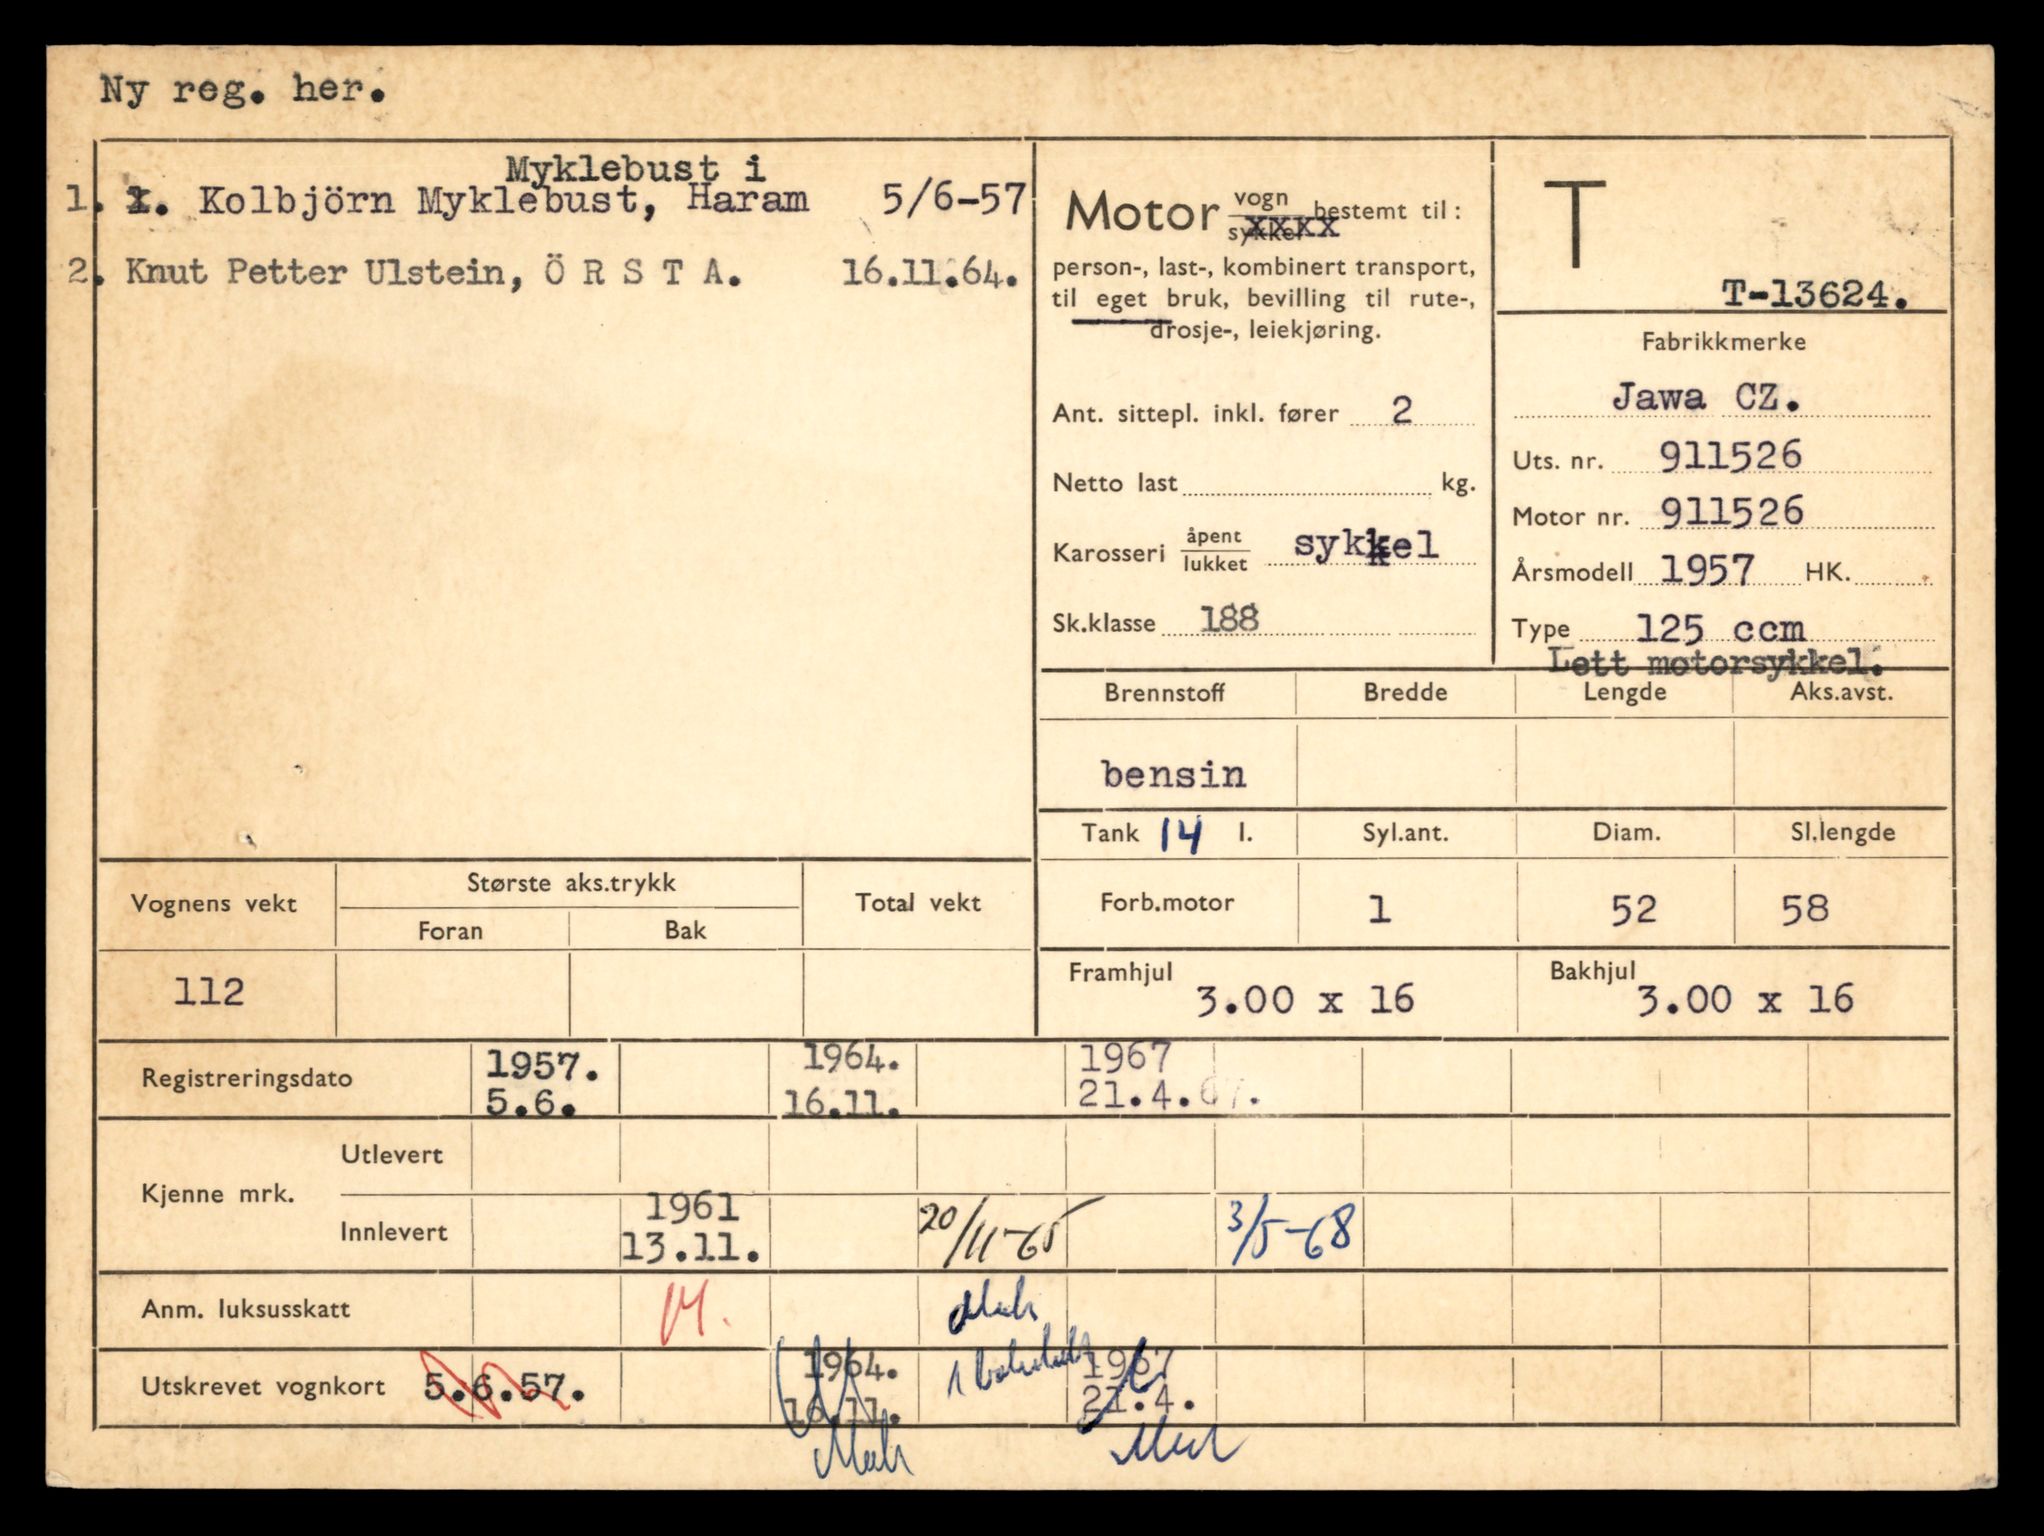 Ny reg. her.
Myklebust i
1. 1. Kolbjörn Myklebust, Haram 5/6-57
2. Knut Petter Ulstein, Ö R S T A. 16.11.64.
Motor vogn
sykkel
xxxx
bestemt til:
person-, last-, kombinert transport,
til eget bruk, bevilling til rute-,
drosje-, leiekjøring.
Ant. sittepl. inkl. fører 2
Netto last kg.
Karosseri åpent
lukket
sykkel
Sk.klasse 188
T
T-13624.
Fabrikkmerke
Jawa CZ.
Uts. nr. 911526
Motor nr. 911526
Årsmodell 1957 HK.
Type 125 ccm
Lett motorsykkel.
Brennstoff Bredde Lengde Aks.avst.
bensin
Tank 14 l. Syl.ant. Diam. Sl.lengde
Forb.motor 1 52 58
Framhjul 3.00 x 16 Bakhjul 3.00 x 16
Vognens vekt Største aks.trykk Total vekt
Foran Bak
112
Registreringsdato 1957. 1964. 1967
5.6. 16.11. 21.4.67.
Kjenne mrk. Utlevert
Innlevert 1961 20/11-65 3/5-68
13.11.
Anm. luksusskatt M.
Utskrevet vognkort 5.6.57. 1964. 1967
16.11. 21.4.